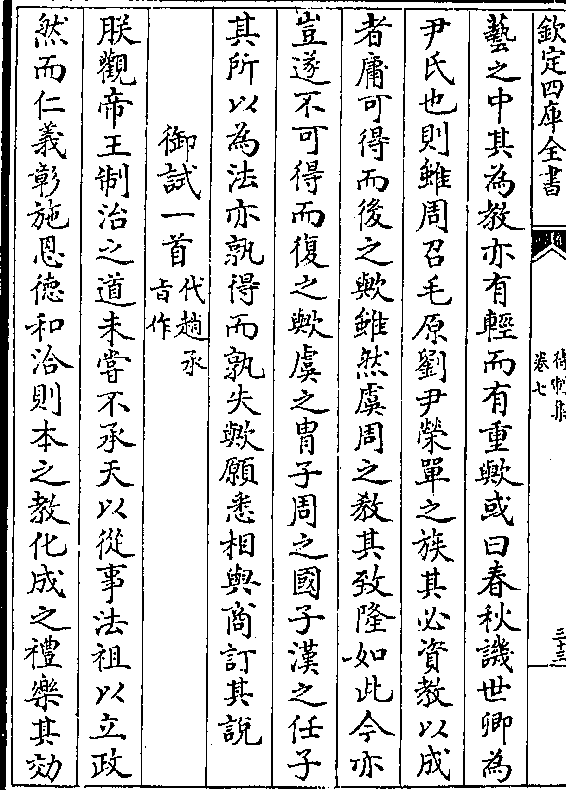 欽定四庫全書
卷七
三十三
藝之中其為教亦有輕而有重歟或曰春秋譏世卿為
尹氏也則雖周召毛原劉尹榮單之族其必資教以成
者庸可得而後之歟雖然虞周之教其致隆如此今亦
豈遂不可得而復之歟虞之胄子周之國子漢之任子
其所以為法亦孰得而孰失歟願悉相與商訂其說
御試一首代趙承
旨作
朕觀帝王制治之道未嘗不承天以從事法祖以立政
然而仁義彰施恩德和洽則本之教化成之禮樂其効